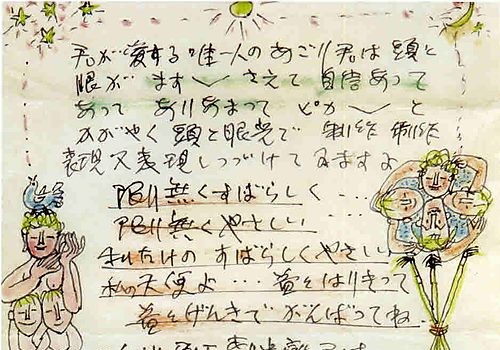 君が愛する唯一人のあごり君は頭と
眼が ます〳〵 さえて 自信あって
あって ありあまって ピカ〳〵 と
かがやく 頭と眼光で 制作 制作
表現又表現しつづけて ますよ
限り無くすばらしく・・・
限り無くやさしい・・・
それだけの すばらしくやさしい
私の天使よ・・・益々はりきって
益々げんきで がんばってね